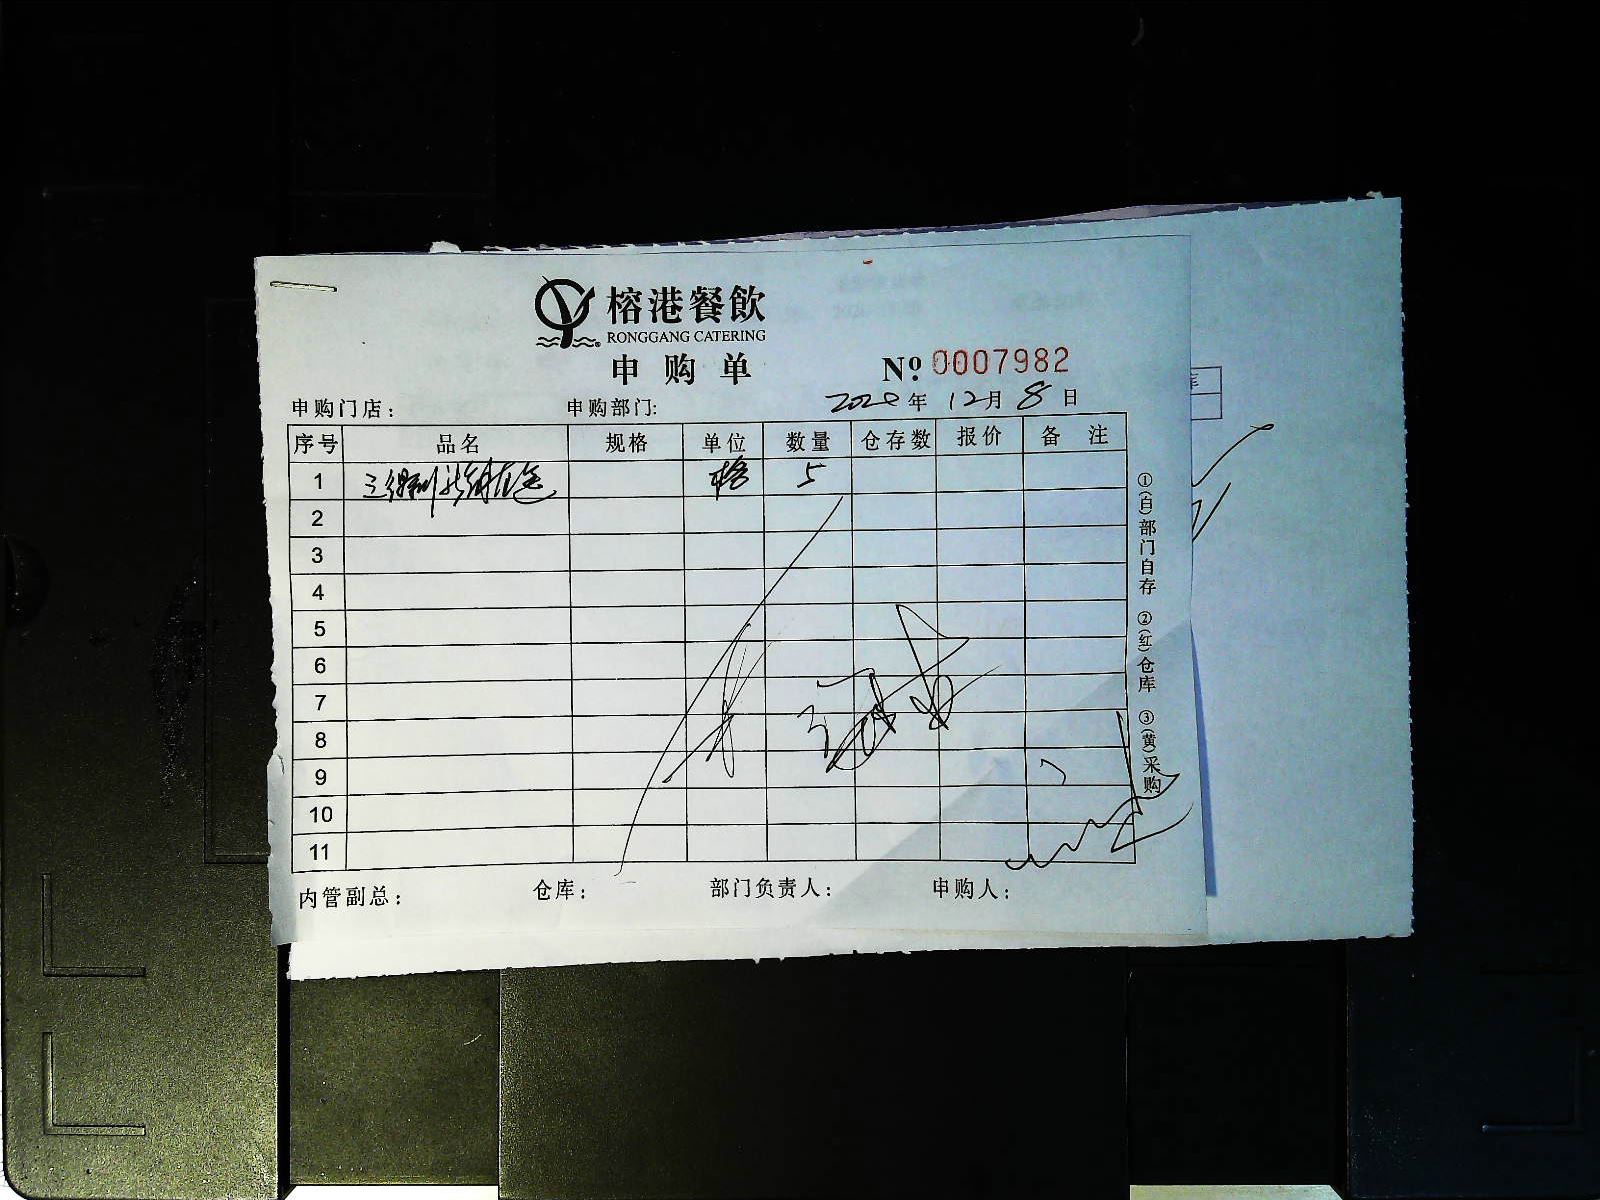 榕港餐飲
RONGGANG CATERING
申购单
Nº 0007982
申购门店： 申购部门： 2020年 12月 8日
序号 品名 规格 单位 数量 仓存数 报价 备 注
1 5
2
3
4
5
6
7
8
9
10
11
内管副总： 仓库： 部门负责人： 申购人：
①(白)部门自存 ②(红)仓库 ③(黄)采购